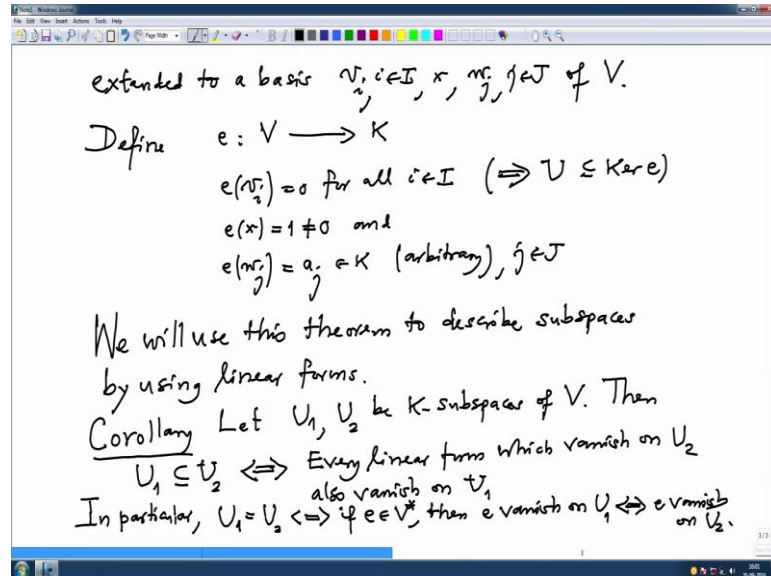 Note1 - Windows Journal
File Edit View Insert Actions Tools Help
Page Width
B I
extended to a basis v_i, i∈I, x, w_j, j∈J of V.
Define e: V ⟶ K
e(v_i)=0 for all i∈I (⟹ U ⊆ Ker e)
e(x)=1≠0 and
e(w_j)=a_j ∈ K (arbitrary), j∈J
We will use this theorem to describe subspaces
by using linear forms.
Corollary Let U_1, U_2 be K-subspaces of V. Then
U_1 ⊆ U_2 ⟺ Every linear form which vanish on U_2
also vanish on U_1
In particular, U_1 = U_2 ⟺ if e∈V*, then e vanish on U_1 ⟺ e vanish
on U_2.
3/3
3
16:01